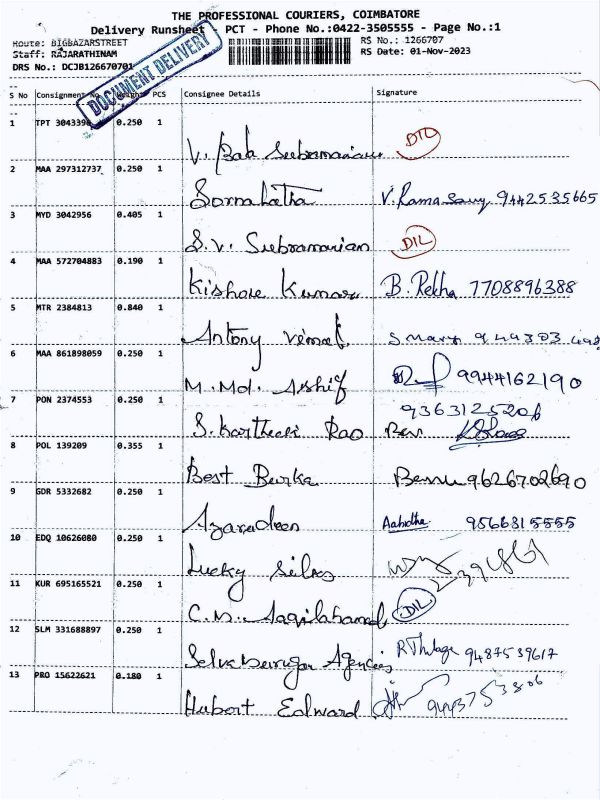 THE PROFESSIONAL COURIERS, COIMBATORE
Delivery Runsheet PCT - Phone No.:0422-3505555 - Page No.:1
Route: BIGBAZARSTREET RS No.: 1266707
Staff: RAJARATHINAM RS Date: 01-Nov-2023
DRS No.: DCJB126670701
DOCUMENT DELIVERY
S No Consignment No. Weight PCS Consignee Details Signature
1 TPT 304339 0.250 1
V. Bala Subramaniam DIL
2 MAA 297312737 0.250 1
Sornalatha V. Rama Samy 9442535665
3 MYD 3042956 0.405 1
S.V. Subramanian DIL
4 MAA 572704883 0.190 1
Kishore Kumar B. Rekha 7708896388
5 MTR 2384813 0.840 1
Antony Vimal S. Mary 949303 498
6 MAA 861898059 0.250 1
M. Md. Ashif 9944162190
7 PON 2374553 0.250 1 9363125206
S. Kartheek Rao
8 POL 139209 0.355 1
Best Burka 9626702690
9 GDR 5332682 0.250 1
Azarudeen 9566315555
10 EDQ 10626080 0.250 1
Lucky Silks
11 KUR 695165521 0.250 1
C.M. DIL
12 SLM 331688897 0.250 1
Selvamurugan Agencies 9487539617
13 PRO 15622621 0.180 1
Hubert Edward 9443753806